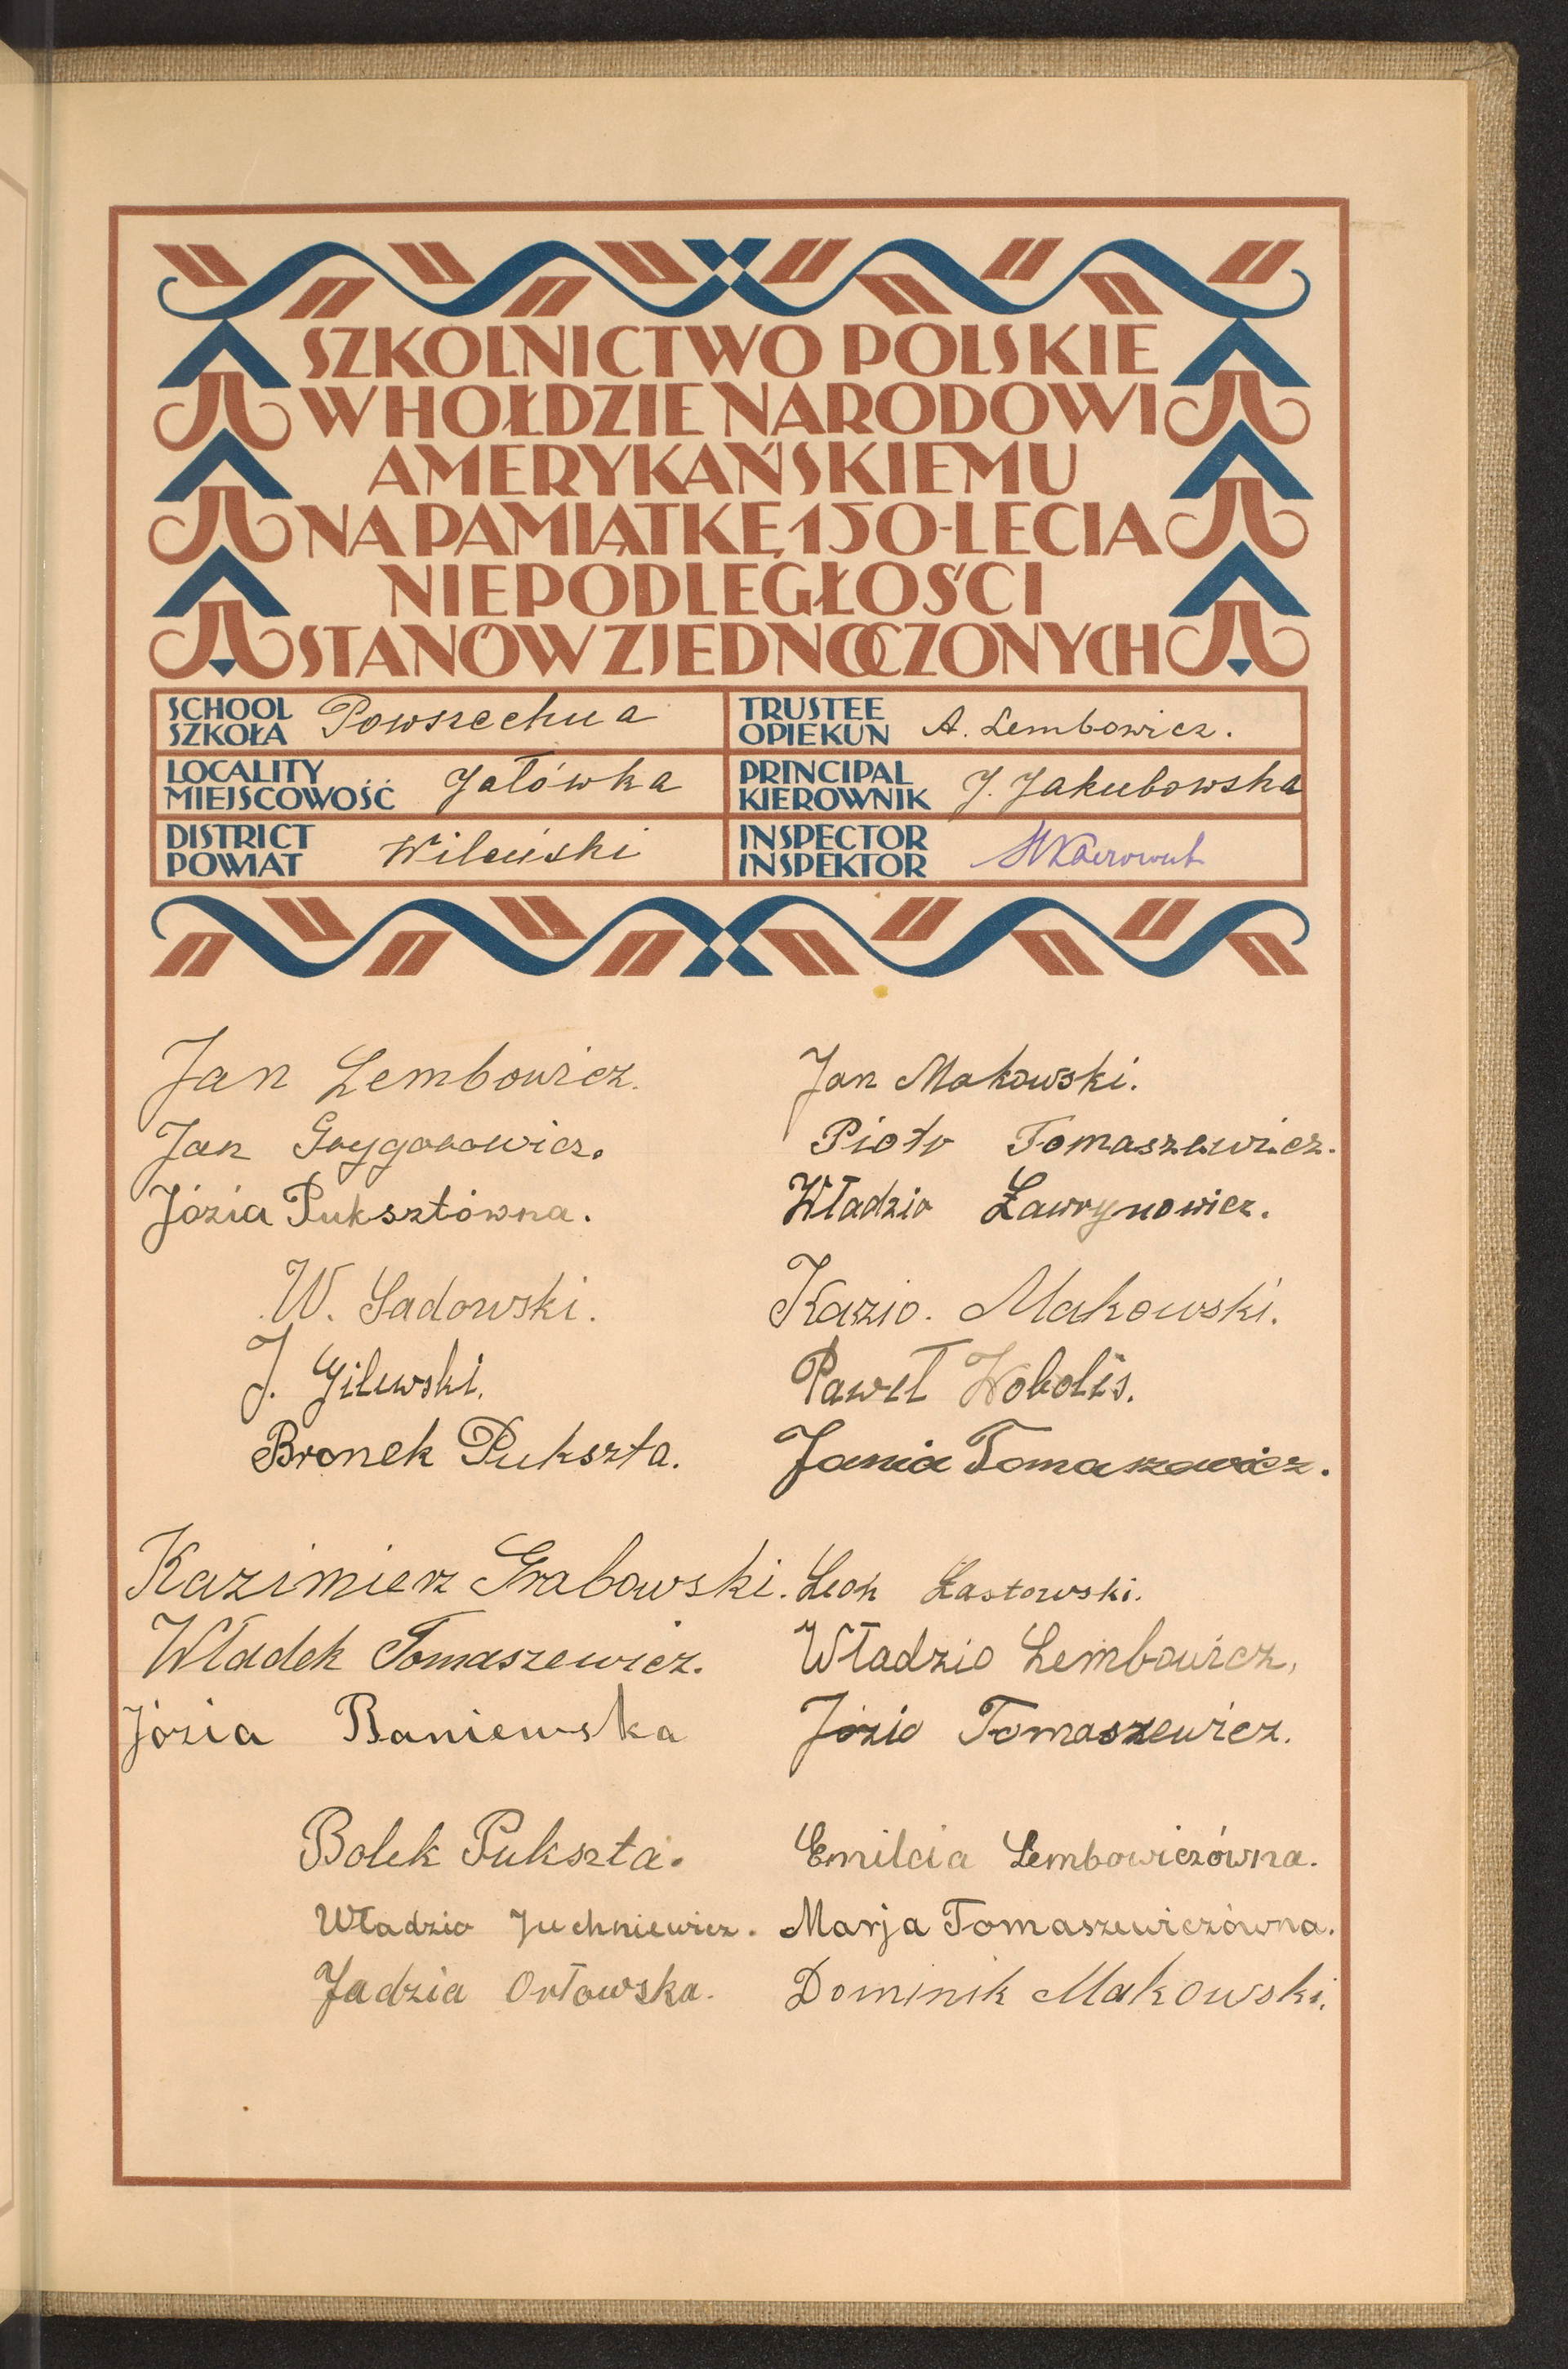 SZKOLNICTWO POLSKIE
W HOŁDZIE NARODOWI
AMERYKAŃSKIEMU
NA PAMIĄTKĘ 150-LECIA
NIEPODLEGŁOŚCI
STANÓW ZJEDNOCZONYCH
SCHOOL
SZKOŁA Powszechna
TRUSTEE
OPIEKUN A. Lembowicz.
LOCALITY
MIEJSCOWOŚĆ Jałówka
PRINCIPAL
KIEROWNIK J. Jakubowska
DISTRICT
POWIAT Wileński
INSPECTOR
INSPEKTOR
Jan Lembowicz.
Jan Grygorowicz.
Józia Puksztówna.
W. Sadowski.
J. Gilewski.
Bronek Pukszta.
Kazimierz Grabowski.
Władek Tomaszewicz.
Józia Baniewska
Bolek Pukszta.
Władzio Juchniewicz.
Jadzia Orłowska.
Jan Makowski.
Piotr Tomaszewicz.
Władzio Ławrynowicz.
Kazio. Makowski.
Paweł Wobolis.
Jania Tomaszewicz.
Leon Łastowski.
Władzio Lembowicz,
Józio Tomaszewicz.
Emilcia Lembowiczówna.
Marja Tomaszewiczówna.
Dominik Makowski.